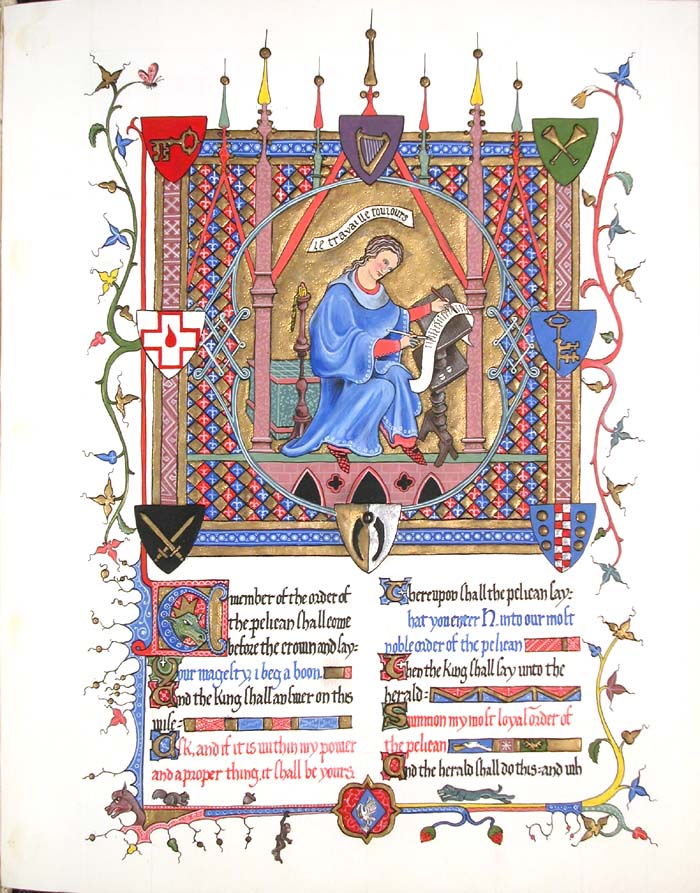 ie travaille touiours
A member of the order of
the pelican shall come
before the crown and say:
Your magesty, i beg a boon.
And the King shall answer on this
wise:
Ask, and if it is within my power
and a proper thing, it shall be yours.
Thereupon shall the pelican say:
hat you enter N. into our most
noble order of the pelican
Then the King shall say unto the
herald:
Summon my most loyal order of
the pelican
And the herald shall do this: and wh